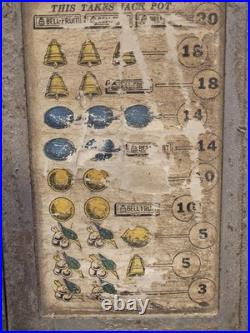 THIS TAKES JACK POT
BELL-FRUIT 20
18
BELL-FRUIT 18
14
BELL-FRUIT 14
10
BELL FRUIT 10
5
5
3